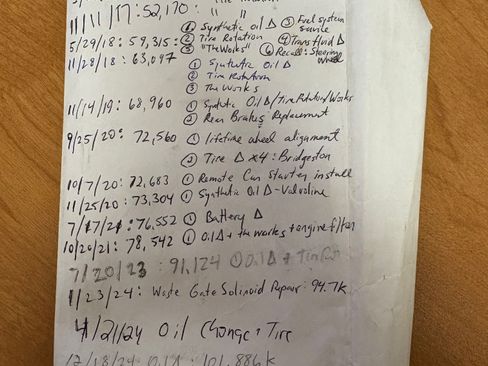 11/11/17: 52,170: " "
① Synthetic oil Δ ③ Fuel system service
5/29/18: 59,315: ② Tire Rotation ④ Trans fluid Δ
③ "The Works" ⑥ Recall: Steering wheel
11/28/18: 63,097 ① Synthetic Oil Δ
② Tire Rotation
③ The Works
11/14/19: 68,960 ① Synthetic Oil Δ/Tire Rotation/Works
② Rear Brakes Replacement
9/25/20: 72,560 ① lifetime wheel alignment
② Tire Δ x4: Bridgeston
10/7/20: 72,683 ① Remote Car starter install
11/25/20: 73,304 ① Synthetic Oil Δ - Valvoline
7/17/21: 76,552 ① Battery Δ
10/20/21: 78,542 ① Oil Δ + the works + engine filter
7/20/23: 91,124 ① Oil Δ + Tire
1/23/24: Waste Gate Solinoid Repair: 94.7k
4/21/24 Oil Change + Tire
12/18/24 Oil Δ: 101,886k